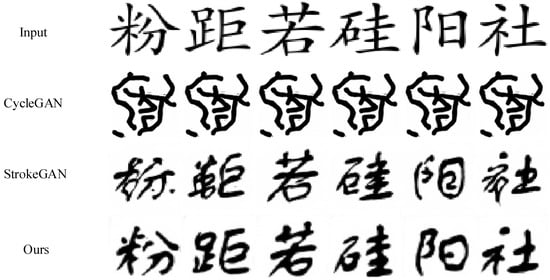 Input 粉 距 若 硅 阳 社
CycleGAN
StrokeGAN 粉 距 若 硅 阳 社
Ours 粉 距 若 硅 阳 社